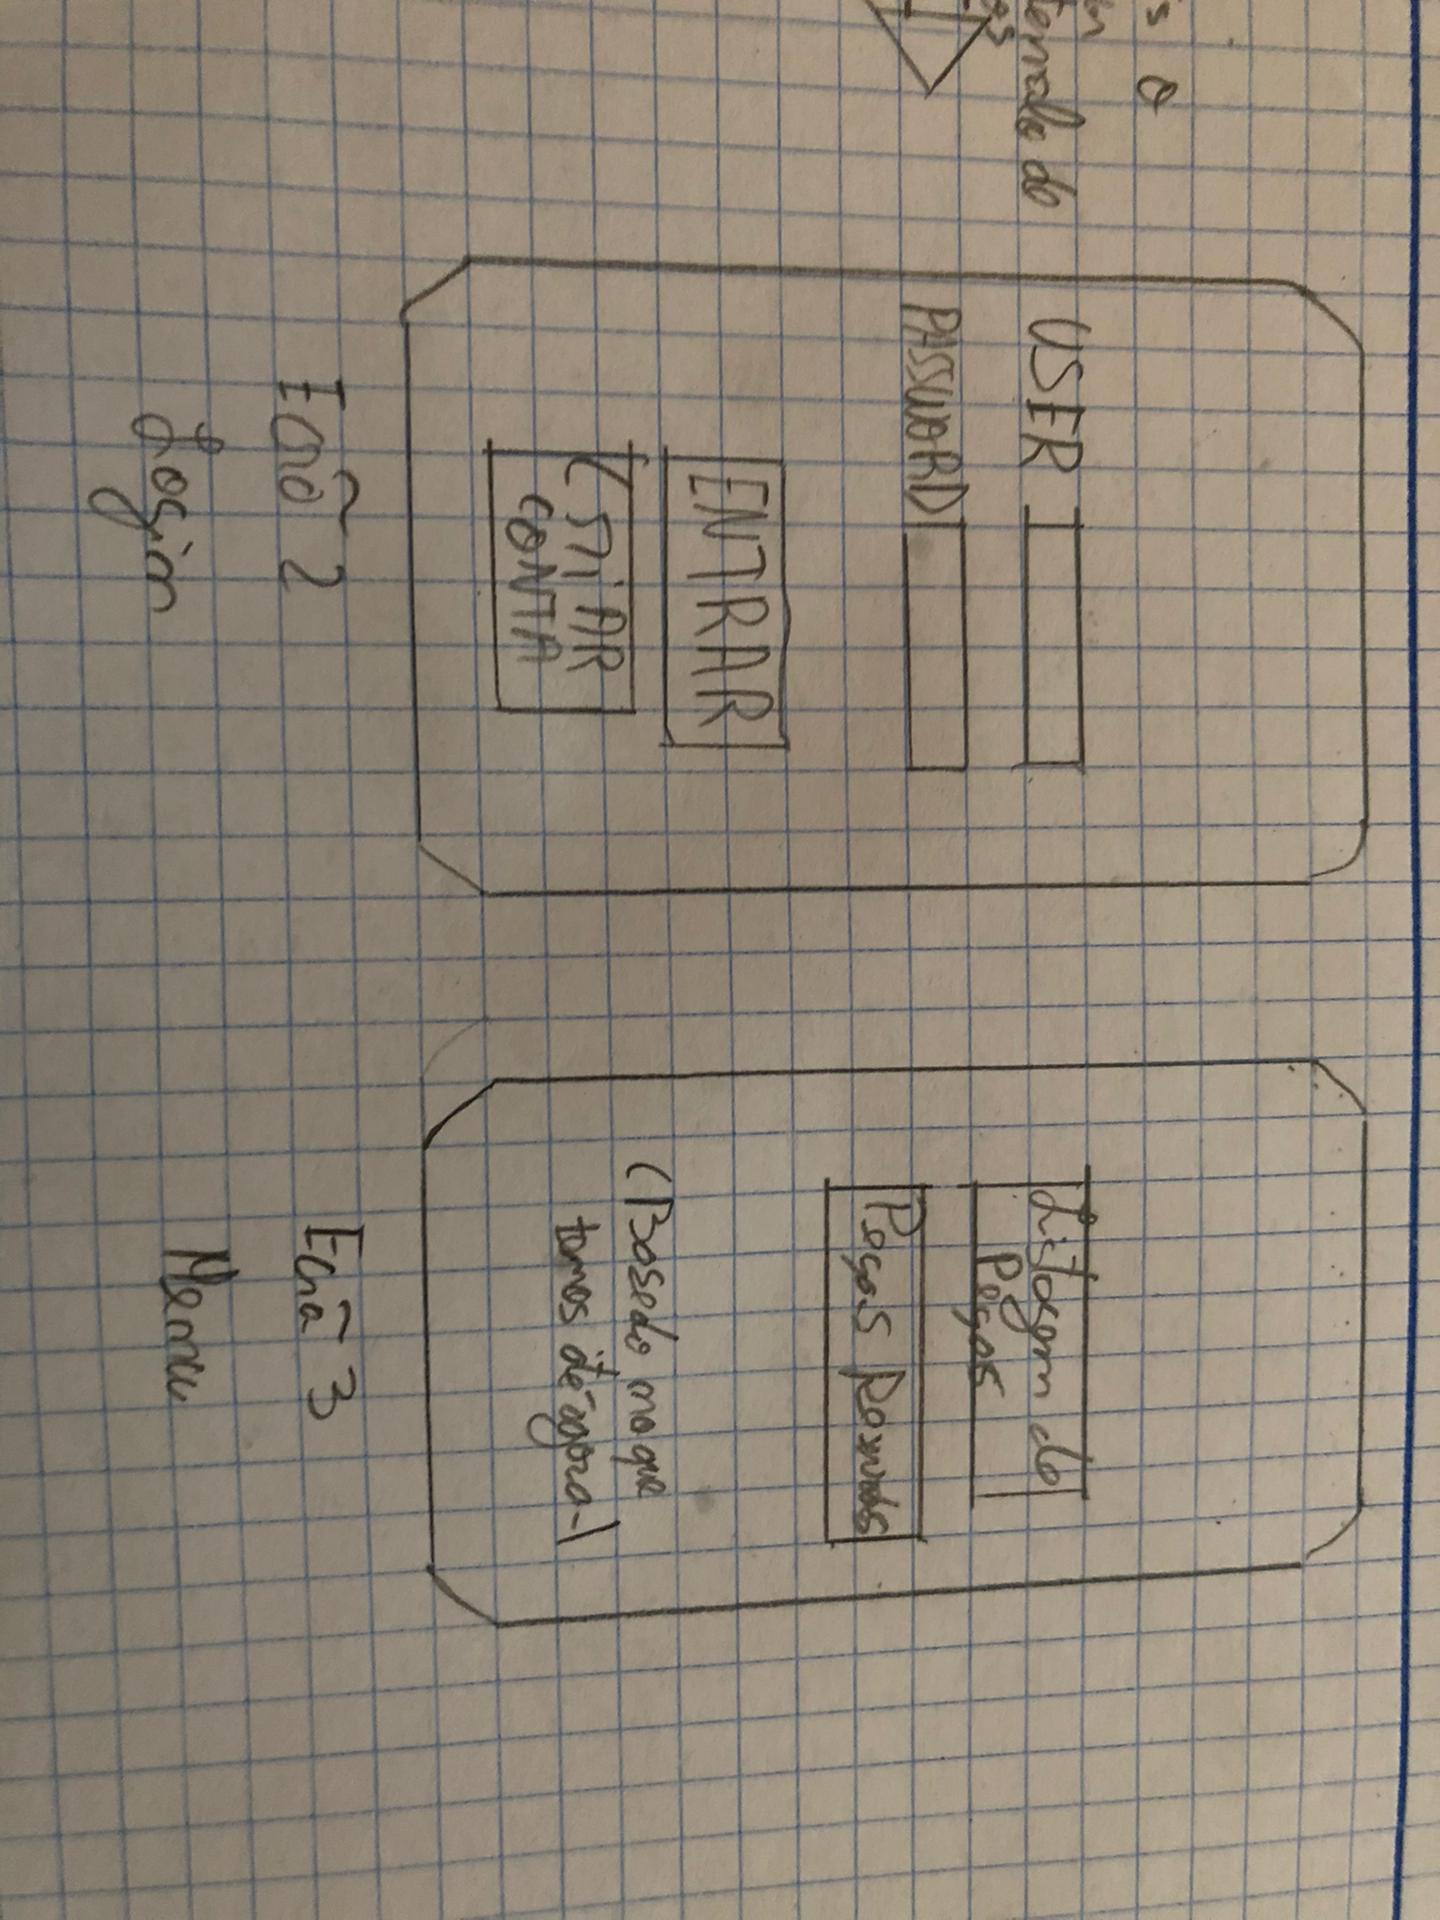 USER
PASSWORD
ENTRAR
CRIAR
CONTA
Ecrã 2
Login
Listagem de
Peças
Peças Reservadas
(Baseado no que
temos até agora-)
Ecrã 3
Menu